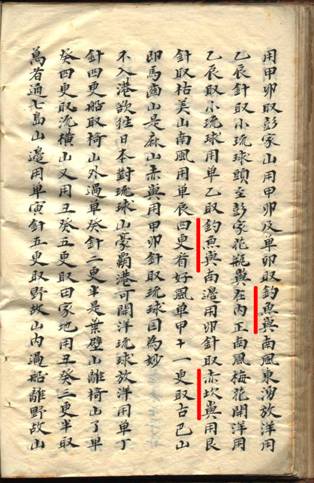 用甲卯取彭家山用甲卯及单卯取釣魚嶼南風東湧放洋用
乙辰針取小琉球頭至彭家花瓶嶼在内正南風梅花開洋用
乙辰取小琉球用单乙取釣魚嶼南邊用卯針取赤坎嶼用艮
針取枯美山南風用单辰四更看好風单甲十一更取古巴山
即馬歯山是麻山赤嶼用甲卯針取琉球國為妙
不入港欲徃日本對琉球山豪覇港可開洋琉球放洋用单丁
針四更船取椅山外過单癸針二更半是葉壁山離椅山了单
癸四更取流横山又用丑癸五更取田家地用丑癸三更半取
萬者通七島山邊用单寅針五更取野故山内過船離野故山